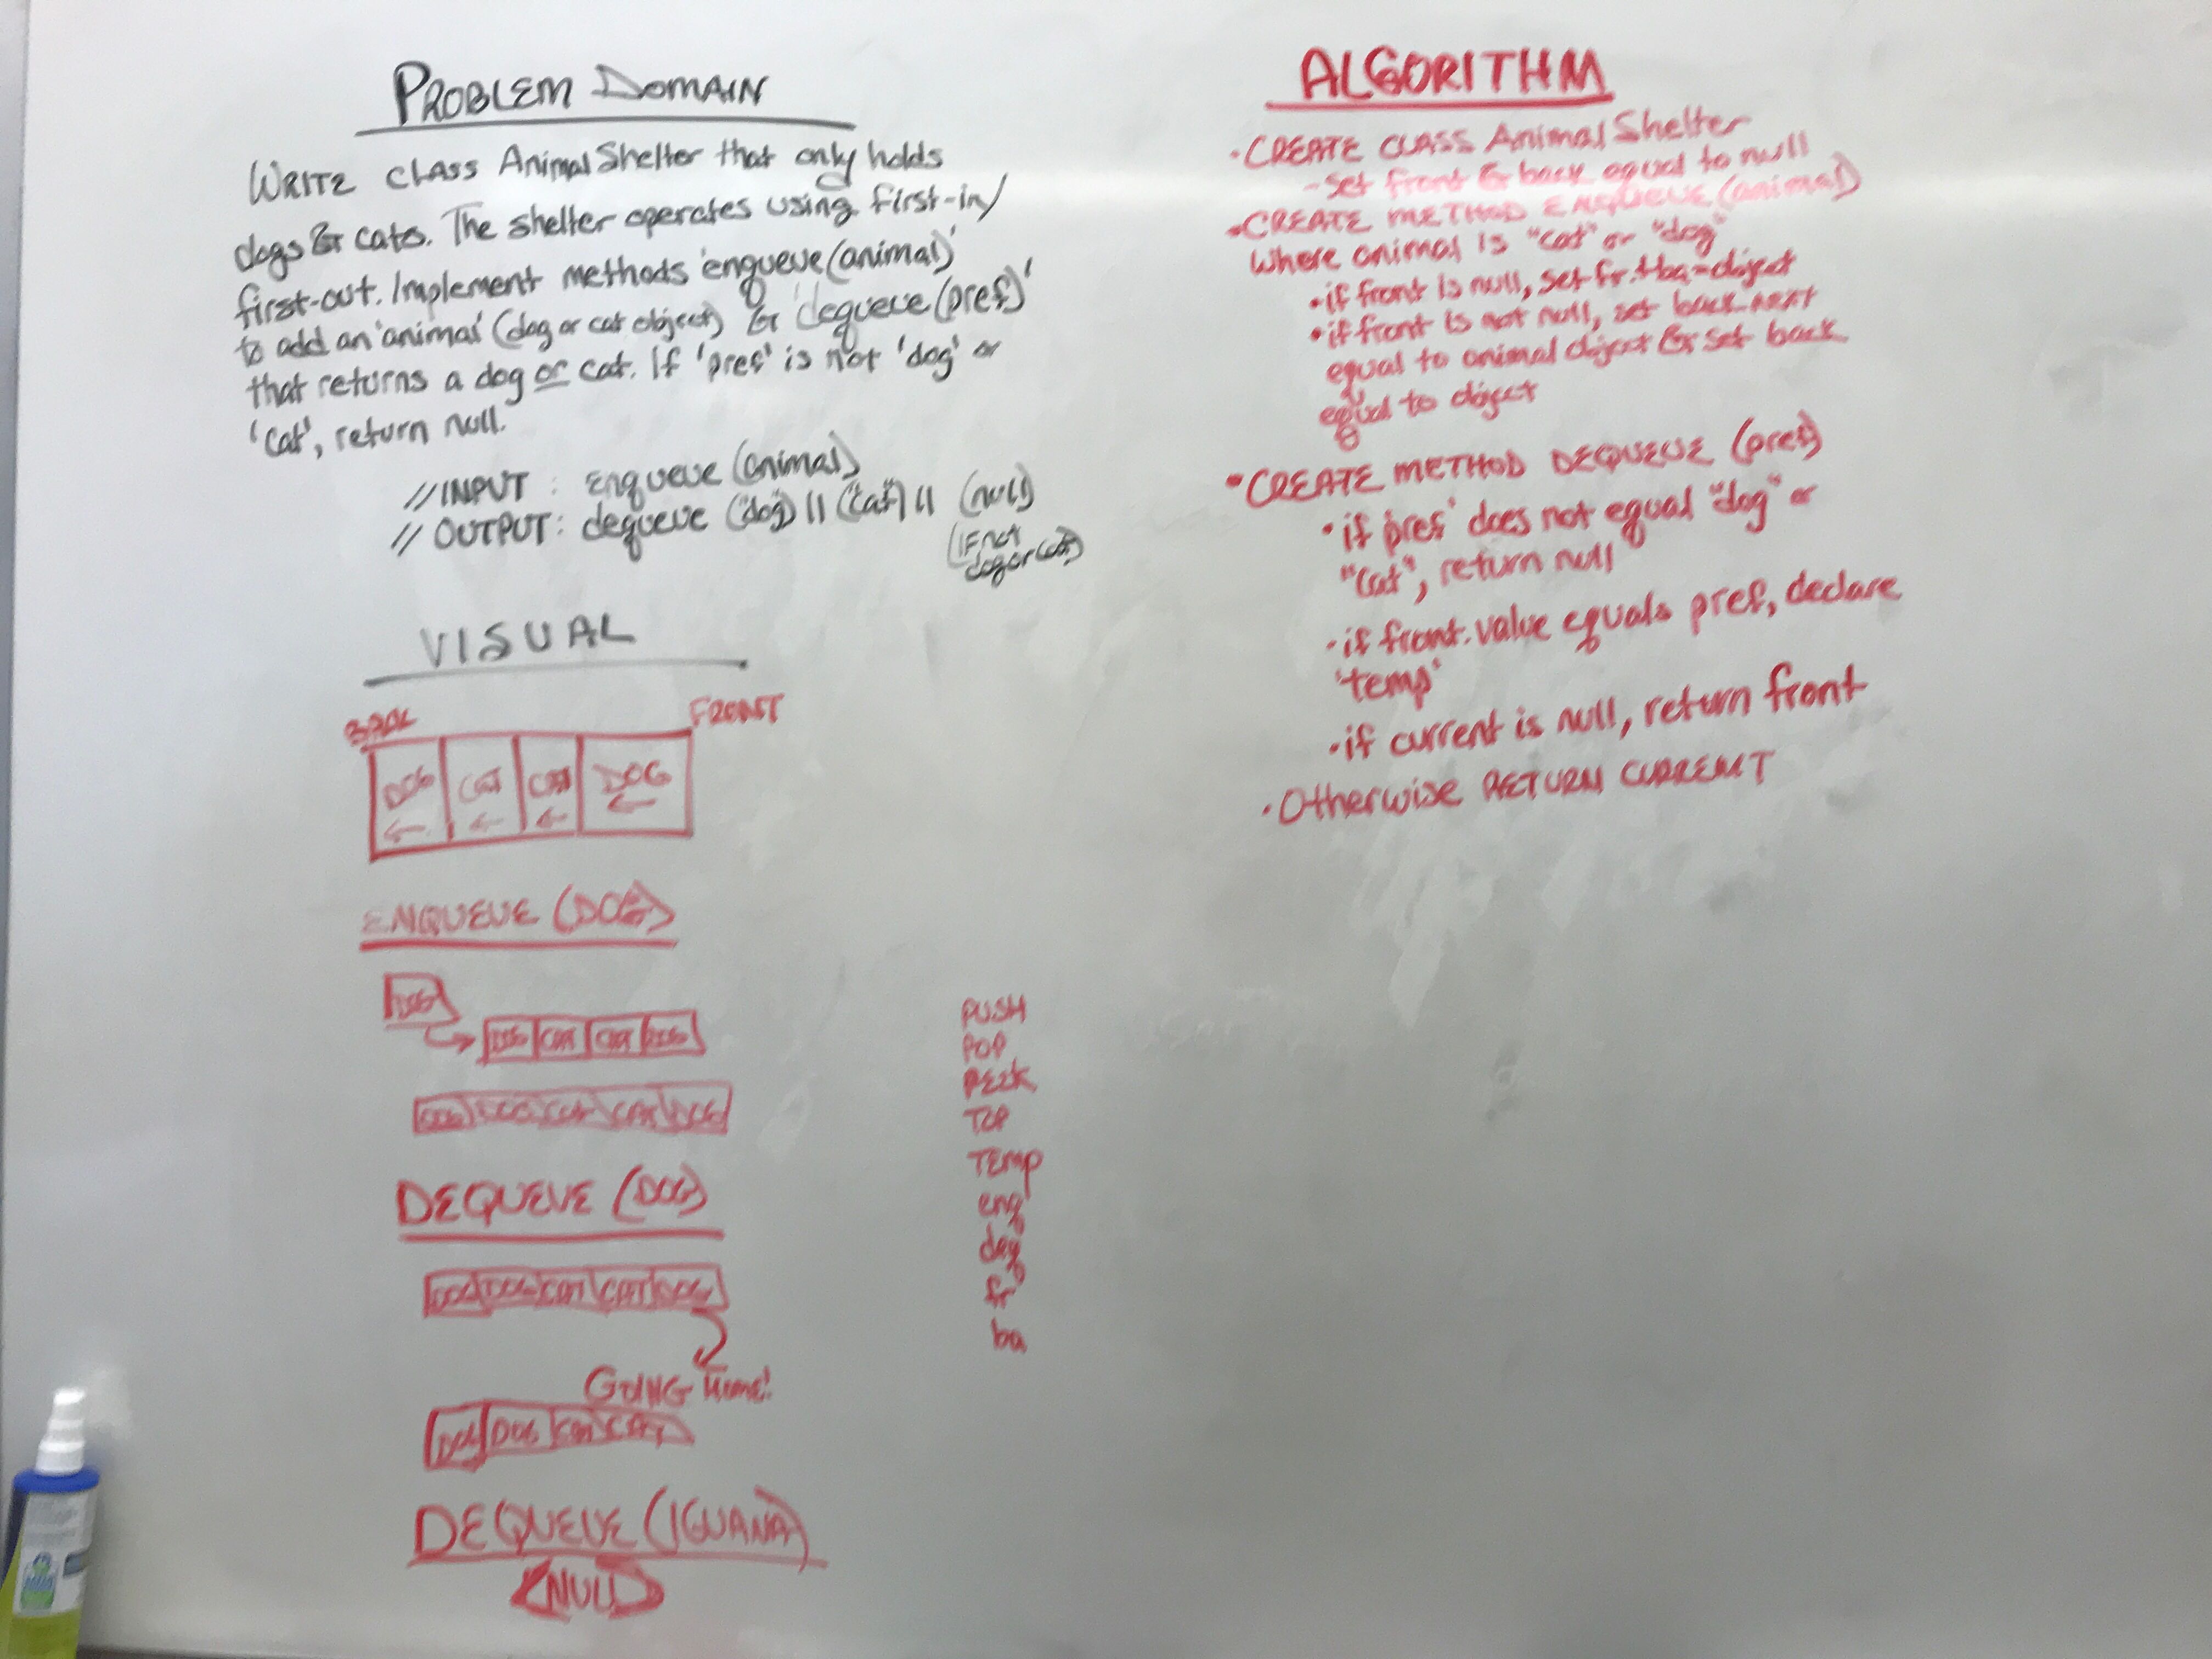 PROBLEM DOMAIN
WRITE CLASS AnimalShelter that only holds
dogs & cats. The shelter operates using first-in/
first-out. Implement methods 'enqueue(animal)'
to add an 'animal' (dog or cat object) & 'dequeue(pref)'
that returns a dog or cat. If 'pref' is not 'dog' or
'cat', return null.
// INPUT : enqueue (animal)
// OUTPUT: dequeue ("dog") || ("cat") || (null)
(IF not
dog or cat)
VISUAL
BACK FRONT
DOG CAT CAT DOG
ENQUEUE (DOG)
DOG
DOG CAT CAT DOG
DOG DOG CAT CAT DOG
DEQUEUE (DOG)
DOG DOG CAT CAT DOG
GOING HOME!
DOG DOG CAT CAT
DEQUEUE (IGUANA)
NULL
PUSH
POP
PEEK
TOP
TEMP
enq
deq
fr
ba
ALGORITHM
• CREATE CLASS AnimalShelter
- set front & back equal to null
• CREATE METHOD ENQUEUE (animal)
where animal is "cat" or "dog"
• if front is null, set fr.+ba=object
• if front is not null, set back.next
equal to animal object & set back
equal to object
• CREATE METHOD DEQUEUE (pref)
• if 'pref' does not equal "dog" or
"cat", return null
• if front.value equals pref, declare
'temp'
• if current is null, return front
• Otherwise RETURN CURRENT